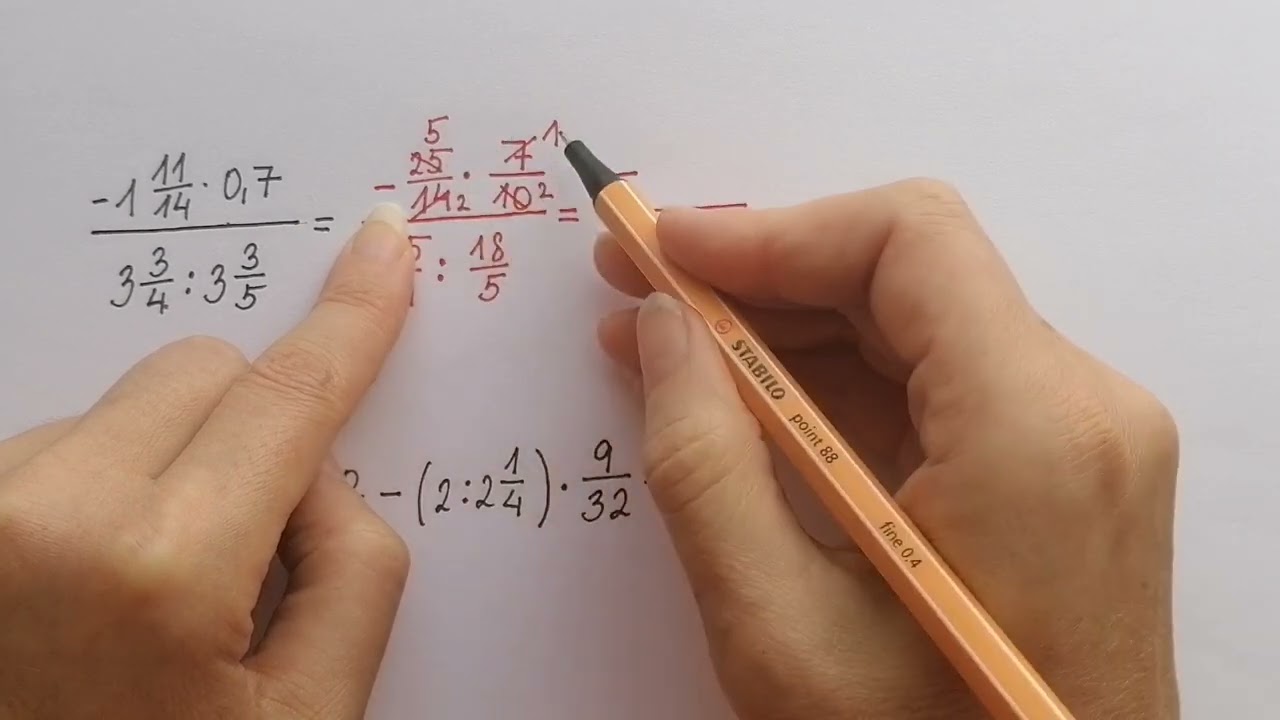 -1 11/14 · 0,7 / 3 3/4 : 3 3/5 = - 25/14 · 7/10 / 5/ : 18/5 = -
5 2 2 1
- (2 : 2 1/4) · 9/32
STABILO point 88 fine 0,4